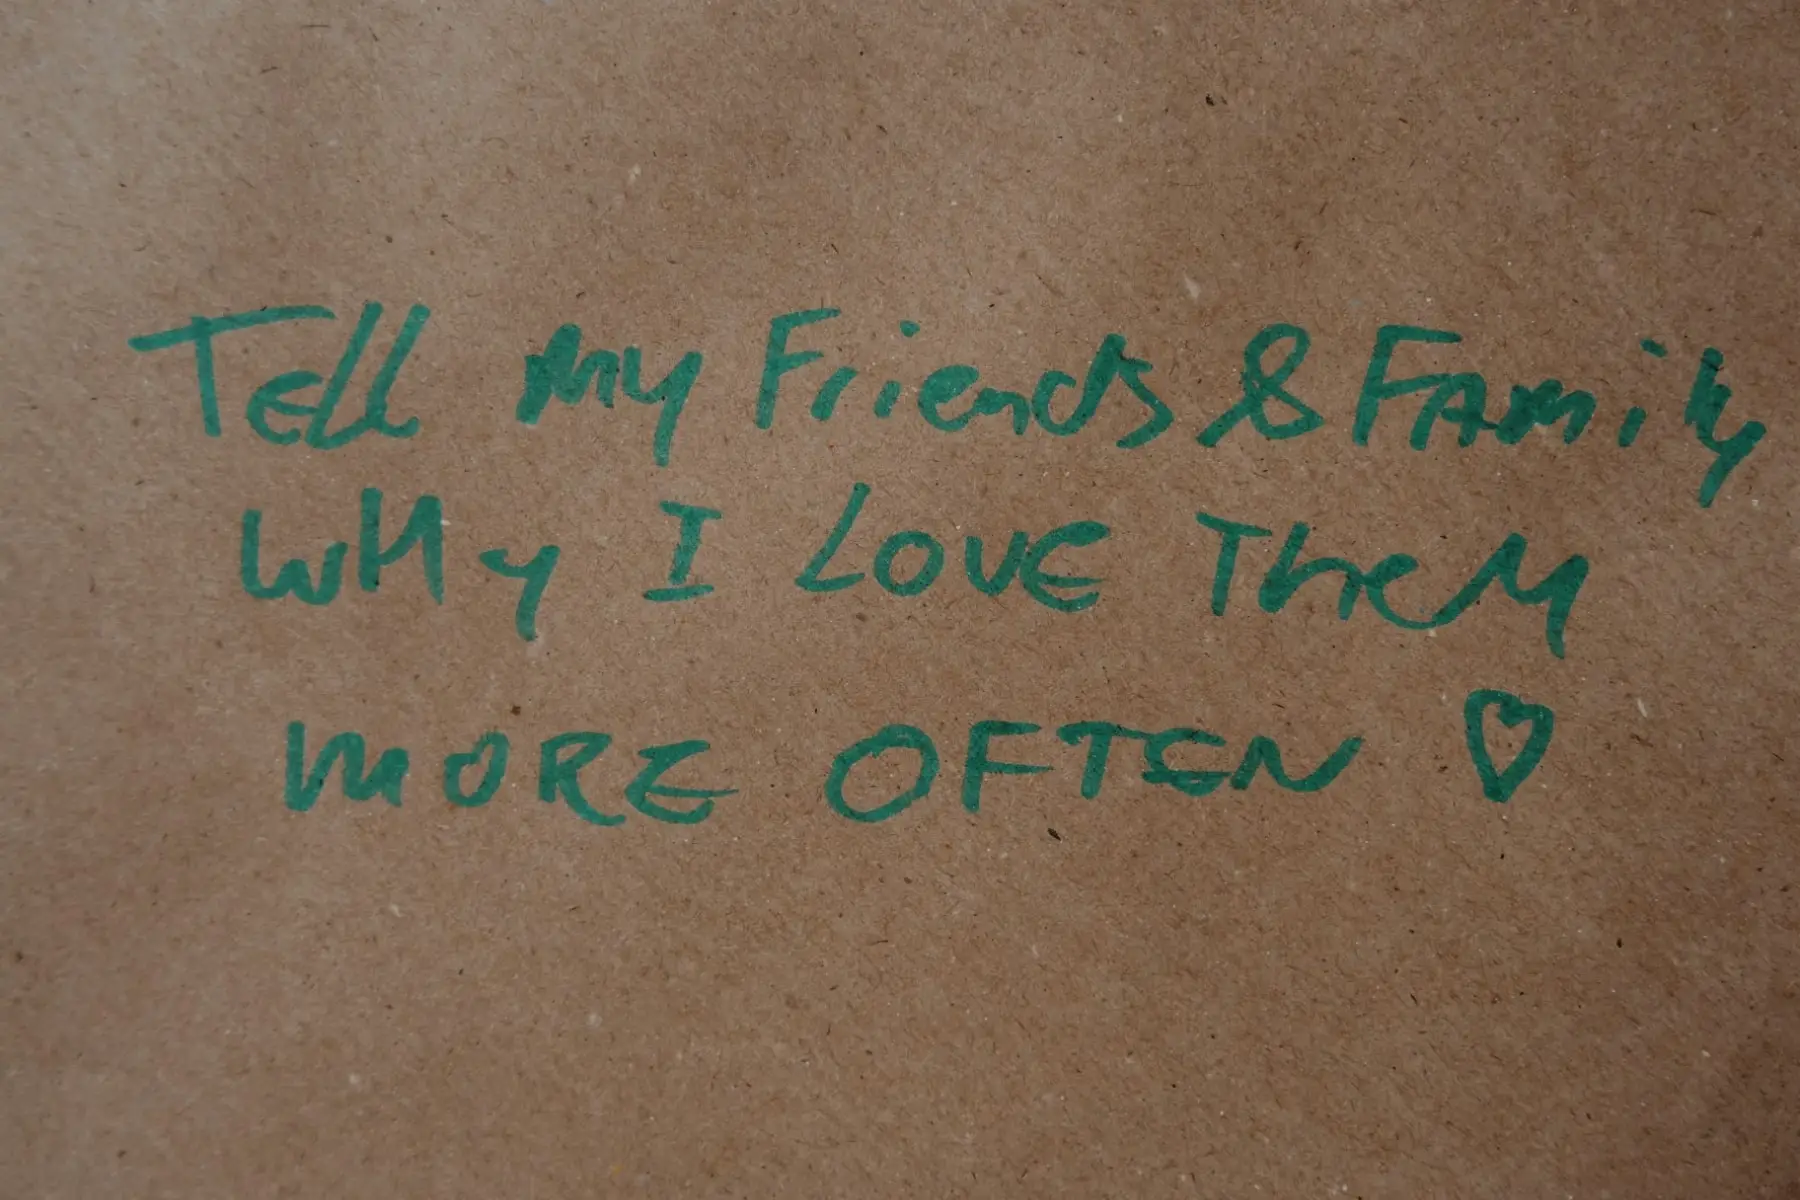 Tell my Friends & Family
WHy I LOVE TheM
MORE OFTEN ♡